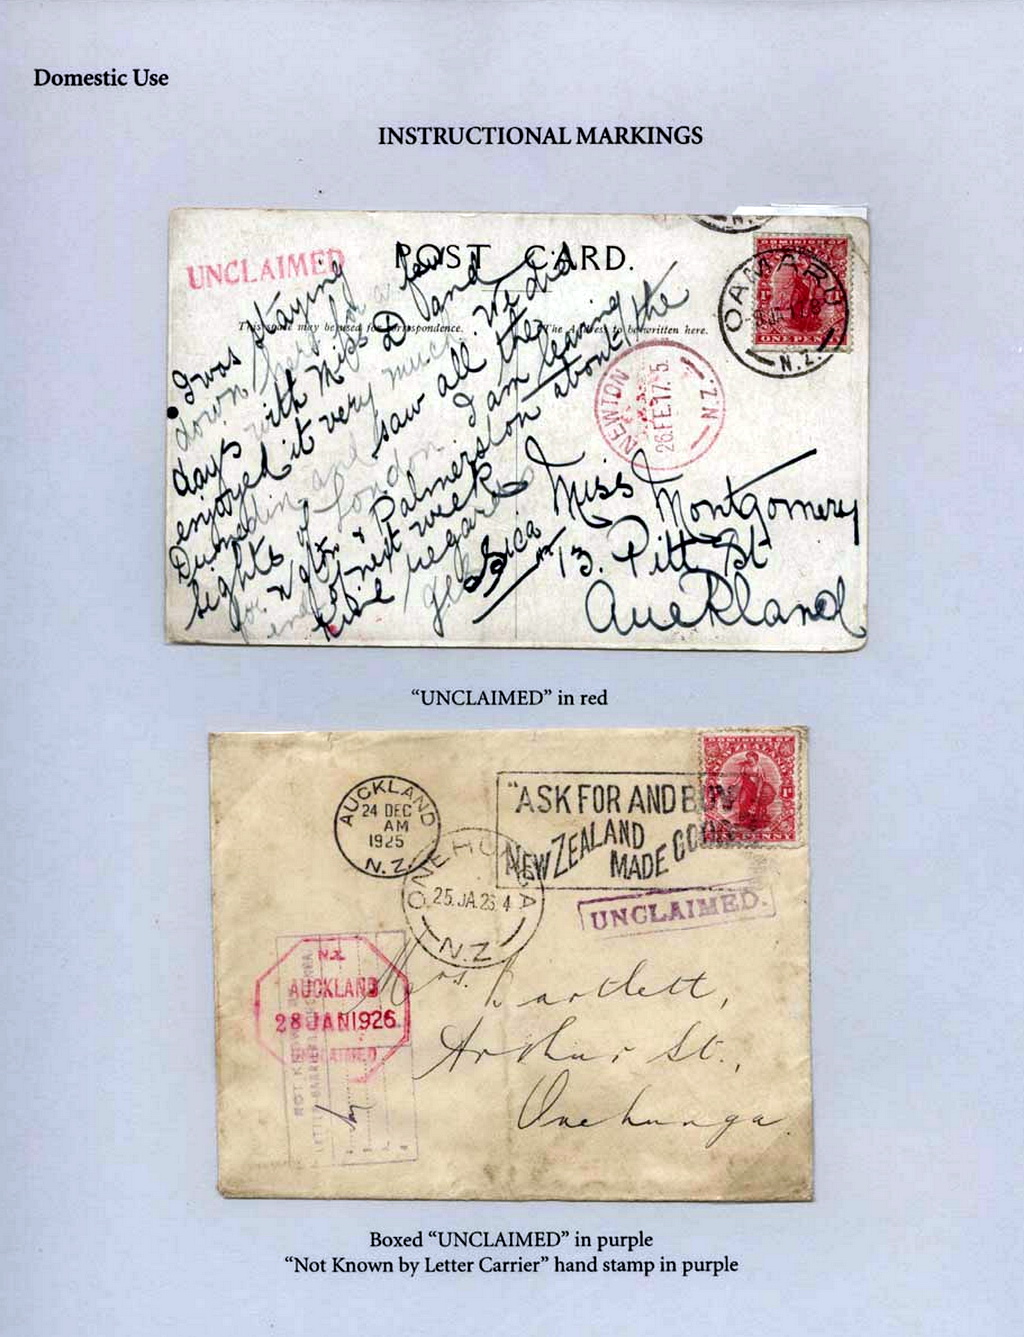 Domestic Use
INSTRUCTIONAL MARKINGS
UNCLAIMED
POST CARD.
This space may be used for correspondence.
The Address to be written here.
DOMINION OF
ONE PENNY
OAMARU
N.Z.
NEWTON
26.FE.17.5.
N.Z.
I was staying
down here for a few
days with Miss D and
enjoyed it very much. We did
Dunedin and saw all the
sights of London. I am leaving
for Wgtn & Palmerston about the
end of next week
Kind regards
Miss Montgomery
13. Pitt St
Auckland
"UNCLAIMED" in red
AUCKLAND
24 DEC
AM
1925
N.Z.
"ASK FOR AND BUY
NEW ZEALAND
MADE GOODS
DOMINION OF
NEW ZEALAND
ONE PENNY
ONEHUNGA
25.JA.26.4
N.Z
UNCLAIMED.
N.Z.
AUCKLAND
28 JAN 1926
UNCLAIMED
Mrs. Bartlett,
Arthur St.,
Onehunga.
Boxed "UNCLAIMED" in purple
"Not Known by Letter Carrier" hand stamp in purple